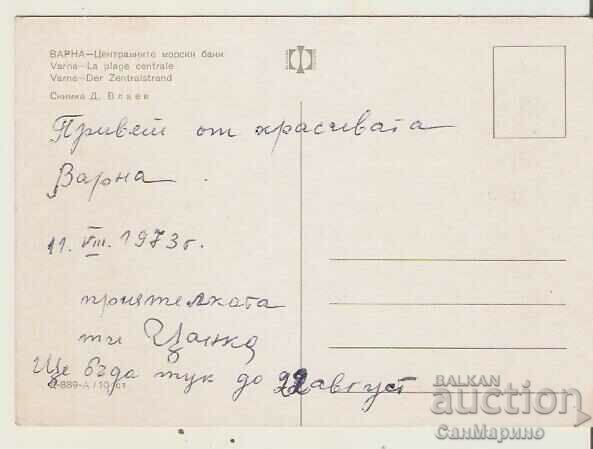 ВАРНА—Централните морски бани
Varna—La plage centrale
Varna—Der Zentralstrand
Снимка Д. Влаев
Привет от красивата
Варна .
11. VIII. 1973 г.
приятелката
ти Цонка
Ще бъда тук до 22 август
Д-889-А / 10 ст.
BALKAN
auction
СанМарино